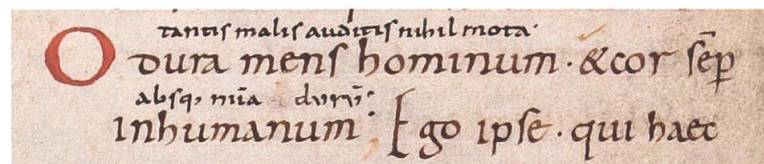 tantis malis auditis nihil mota·
O dura mens hominum · & cor sēp
absq; mīa durū:
Inhumanum: Ego ipse · qui haec